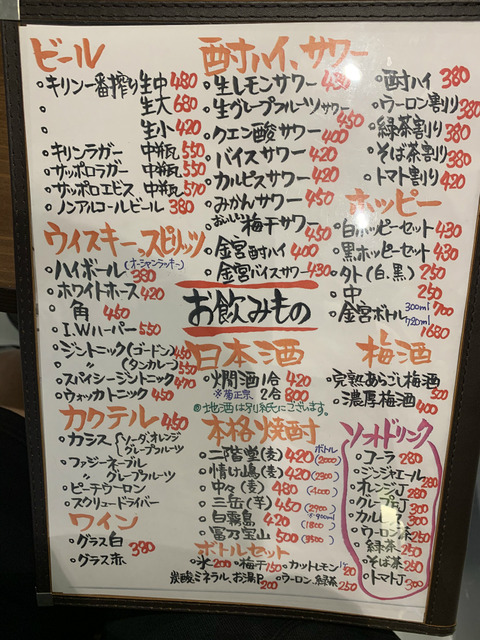 ビール
・キリン一番搾り 生中 480
・ 生大 680
・ 生小 420
・キリンラガー 中瓶 550
・サッポロラガー 中瓶 550
・サッポロエビス 中瓶 570
・ノンアルコールビール 380
ウィスキー、スピリッツ
・ハイボール(オーシャンラッキー) 380
・ホワイトホース 420
・ 角 450
・I.W.ハーパー 550
・ジントニック(ゴードン) 450
・ 〃 (タンカレー) 550
・スパイシージントニック 470
・ウォッカトニック 450
カクテル 450
・カシス ソーダ、オレンジ
グレープフルーツ
・ファジーネーブル
〃 グレープフルーツ
・ピーチウーロン
・スクリュードライバー
ワイン
・グラス白 380
・グラス赤
酎ハイ、サワー
・生レモンサワー 450
・生グレープフルーツサワー 450
・クエン酸サワー 400
・バイスサワー 420
・カルピスサワー 420
・みかんサワー 450
・おいしい梅干サワー 450
・金宮酎ハイ 400
・金宮バイスサワー 430
・酎ハイ 380
・ウーロン割り 380
・緑茶割り 380
・そば茶割り 380
・トマト割り 420
ホッピー
・白ホッピーセット 430
・黒ホッピーセット 430
・外(白、黒) 250
・中 250
・金宮ボトル 300ml 700
720ml 1680
お飲みもの
日本酒
・燗酒 1合 420
※菊正宗 2合 800
◎地酒は別紙にございます。
梅酒
・完熟あらごし梅酒 500
・濃厚梅酒 400
本格焼酎
・二階堂(麦) 420 ボトル(2000)
・情け嶋(麦) 420 (2300)
・中々(麦) 480 (4000)
・三岳(芋) 450 (2900)
・白霧島 420 (1800)
・富乃宝山 500 (3500)
ボトルセット
・氷 200 ・梅干 150 ・カットレモン 20
炭酸、ミネラル、お湯P. 200 ・ウーロン、緑茶 250
ソフトドリンク
・コーラ 280
・ジンジャエール 280
・オレンジJ 280
・グレープJ 300
・カルピス 300
・ウーロン茶 250
・緑茶 250
・そば茶 250
・トマトJ 300